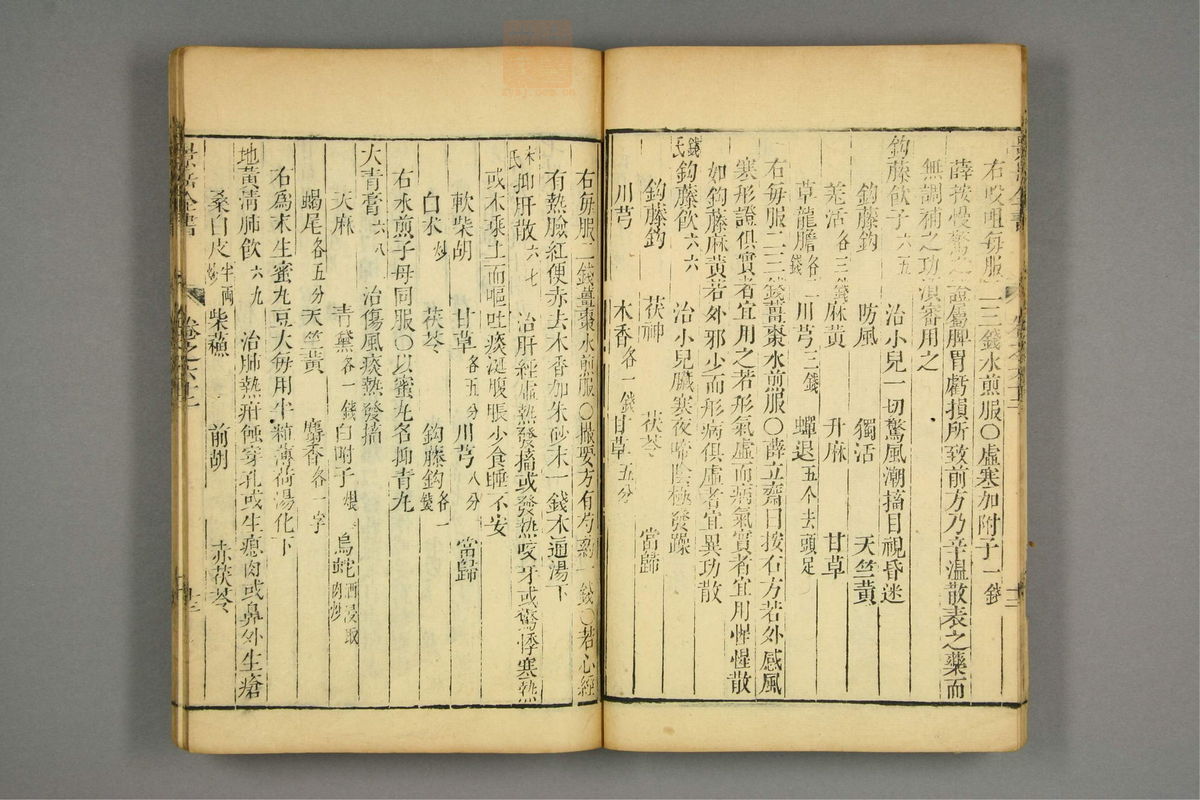 右㕮咀每服二三錢水煎服〇虛寒加附子一錢
薛按慢驚之證屬脾胃虧損所致前方乃辛溫散表之藥而
無調補之功須審用之
鈎藤飲子 六五 治小兒一切驚風潮搐目視昏迷
鈎藤鈎 防風 獨活 天竺黃
羌活各三錢 麻黃 升麻 甘草
草龍膽各二錢 川芎三錢 蟬退五个去頭足
右每服二三錢薑棗水煎服〇薛立齋曰按右方若外感風
寒形證俱實者宜用之若形氣虛而病氣實者宜用惺惺散
如鈎藤麻黃若外邪少而形病俱虛者宜異功散
錢氏鈎藤飲 六六 治小兒臟寒夜啼陰極發躁
鈎藤鈎 茯神 茯苓 當歸
川芎 木香各一錢 甘草五分
右每服二錢薑棗水煎服〇撮要方有芍藥一錢〇若心經
有熱臉紅便赤去木香加朱砂末一錢木通湯下
宋氏抑肝散 六七 治肝經虛熱發搐或發熱咬牙或驚悸寒熱
或木乘土而嘔吐痰涎腹脹少食睡不安
軟柴胡 甘草各五分 川芎八分 當歸
白朮炒 茯苓 鈎藤鈎各一錢
右水煎子母同服〇以蜜丸名抑青丸
大青膏 六八 治傷風痰熱發搐
天麻 青黛各一錢 白附子煨 烏蛇酒浸取肉炒
蝎尾各五分 天竺黃 麝香各一字
右為末生蜜丸豆大每用半粒薄荷湯化下
地黃清肺飲 六九 治肺熱疳蝕穿孔或生瘜肉或鼻外生瘡
桑白皮半兩炒 柴蘓 前胡 赤茯苓
景岳全書
卷之六十二